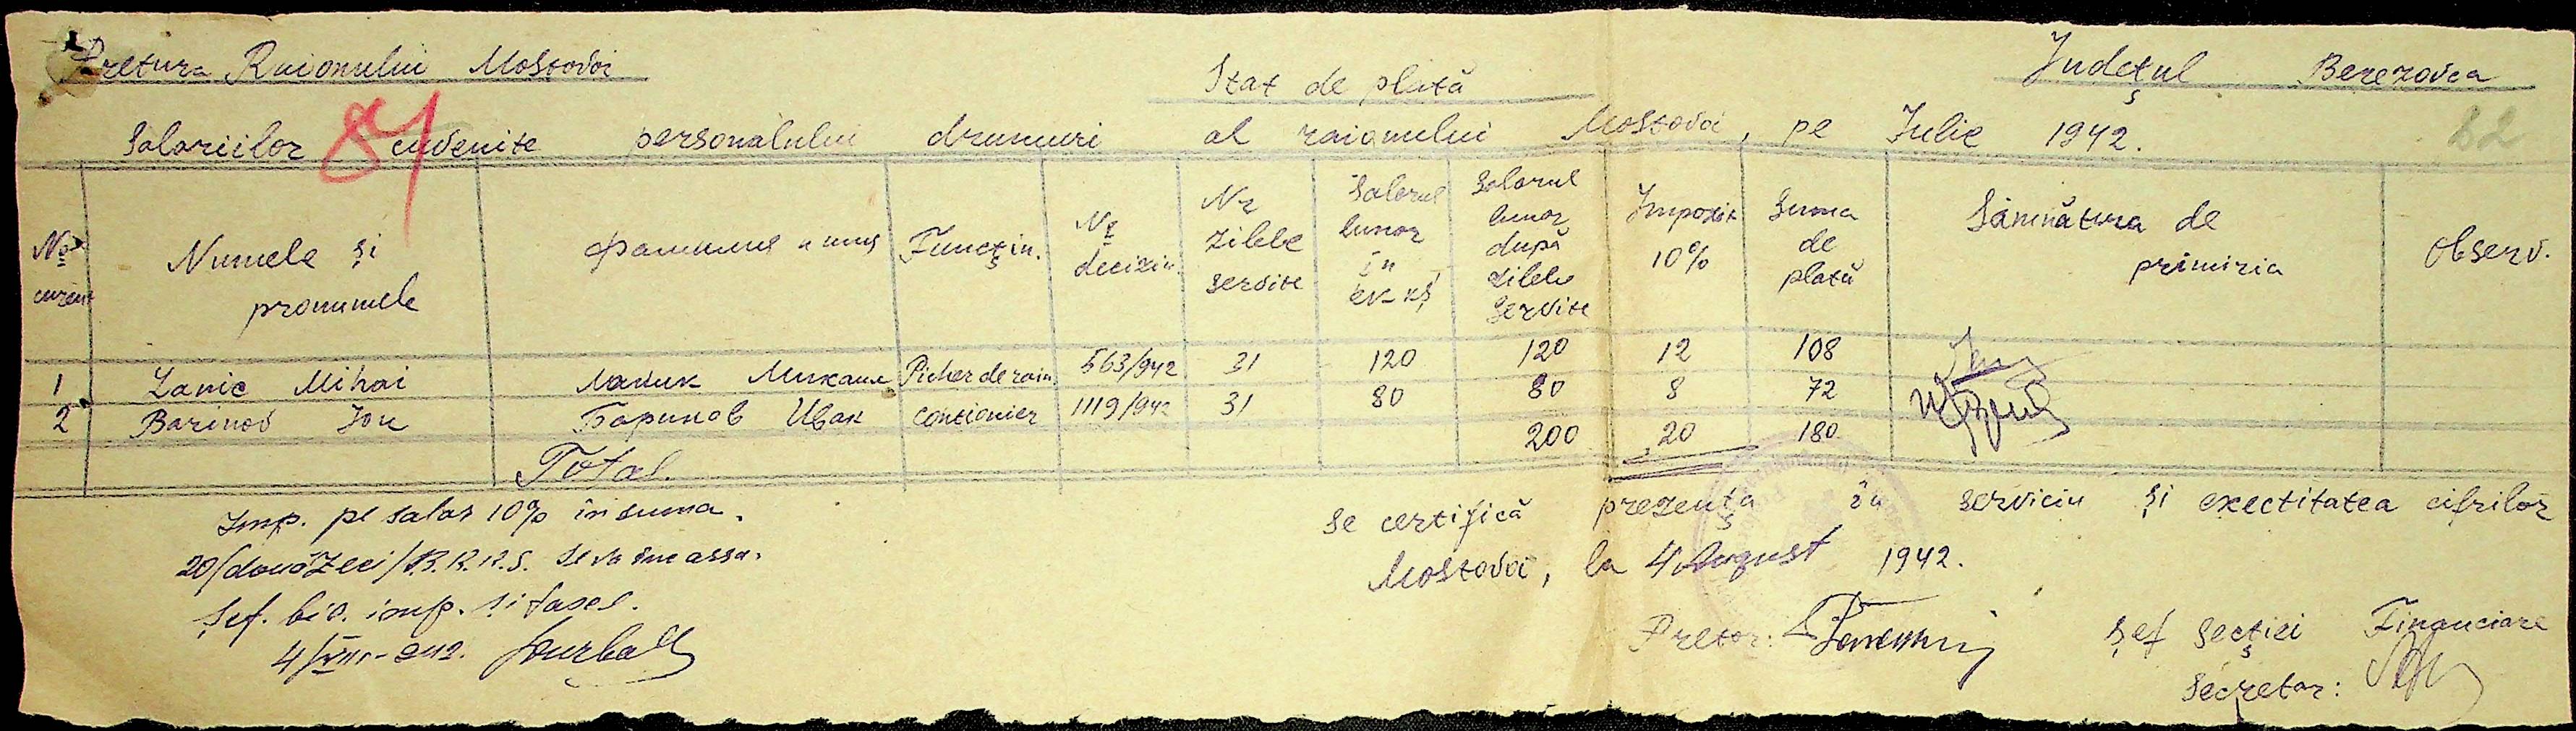 Pretura Raionului Mostovoi
Județul Berezovca
Stat de plată
Salariilor cuvenite personalului drumuri al raionului Mostovoi, pe Iulie 1942.
84
82
No curent
Numele și pronumele
Фамилия и имя
Funcțin.
Nr deciziu.
Nr zilele servite
Salarul lunar în
Salarul lunar după zilele servite
Impozit 10%
Suma de plată
Sămnătura de primiria
Observ.
1 Lanic Mihai Ланик Михаил Picher de raion 563/942 31 120 120 12 108
2 Barinov Ion Баринов Иван contionier 1119/942 31 80 80 8 72
Total. 200 20 180
Imp. pe salar 10% în suma
20/două Zeci/ se va încassa.
Șef. bio. imp. și taxel.
4/VIII-942.
Se certifică prezența în serviciu și exectitatea cifrilor
Mostovoi, la 4 August 1942.
Pretor:
Șef Secției Financiare
Secretar: